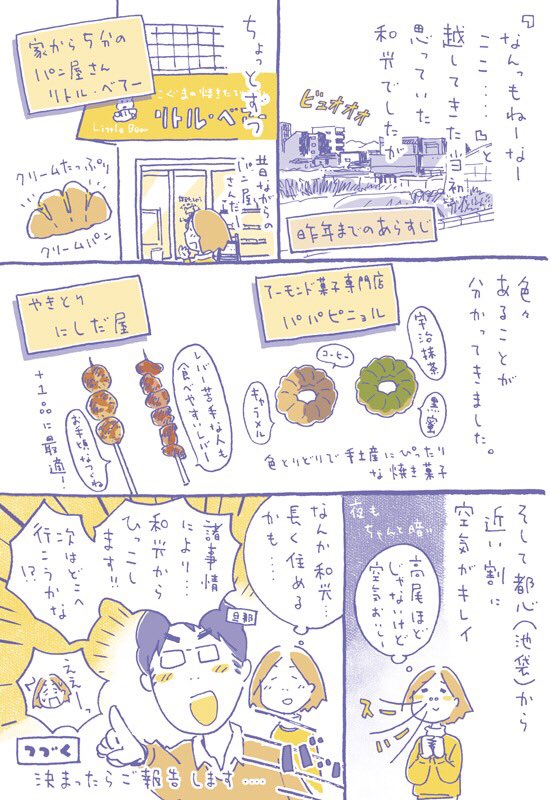 『なんっもねーなー
ここ……』と
越してきた当初
思っていた
和光でしたが
ビュオオオ
昨年までのあらすじ
ちょっとずつ
リトル・ベアー
Little Bear
昔ながらの
パン屋
さんだ
家から5分の
パン屋さん
リトル・ベアー
クリームたっぷり
クリームパン
色々
あることが
分かってきました。
アーモンド菓子専門店
パパピニョル
宇治抹茶
黒蜜
コーヒー
キャラメル
色とりどりで手土産にぴったり
な焼き菓子
やきとり
にしだ屋
レバー苦手な人も
食べやすいレバー
お手頃なつくね
+100に最適!
そして都心(池袋)から
近い割に
空気がキレイ
夜も
ちゃんと暗い
高尾ほど
じゃないけど
空気おいしー
スー
なんか和光…
長く住める
かも…
旦那
諸事情
により…
和光から
ひっこし
ます!!
次はどこへ
行こうかな
!?
ええーっ
つづく
決まったらご報告します‥‥